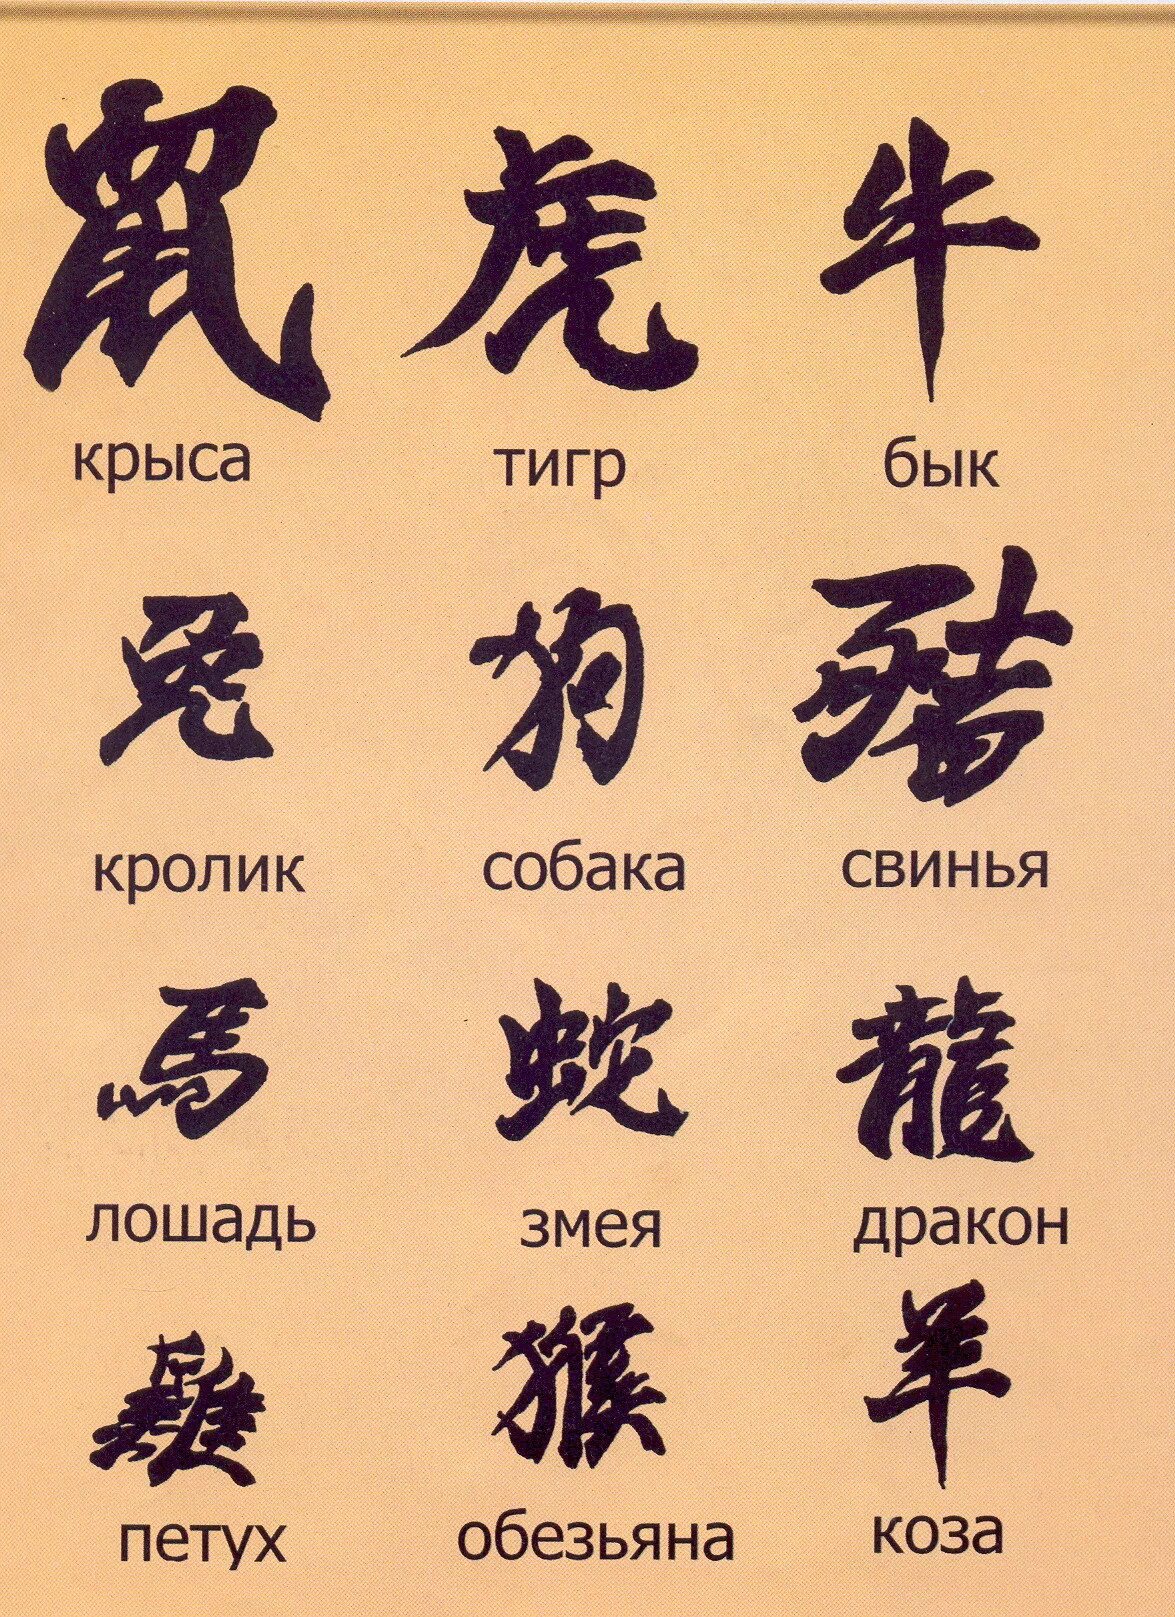 鼠 虎 牛
крыса тигр бык
兔 狗 豬
кролик собака свинья
馬 蛇 龍
лошадь змея дракон
雞 猴 羊
петух обезьяна коза